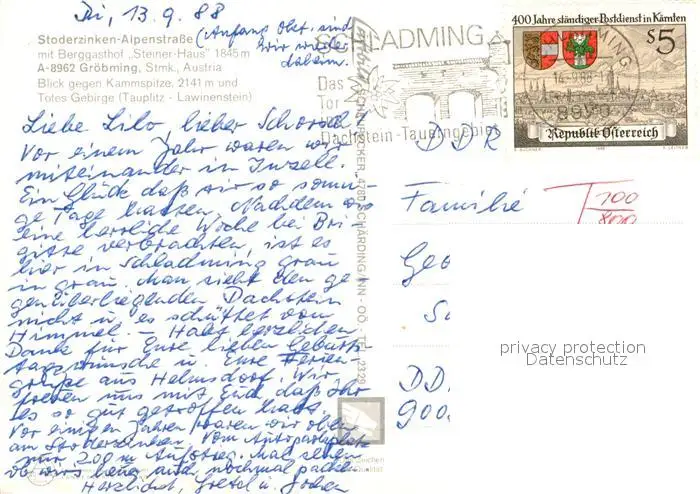 Di, 13.9.88
(Anfang Okt. sind
wir wieder
daheim.
Stoderzinken-Alpenstraße
mit Berggasthof "Steiner-Haus" 1845 m
A-8962 Gröbming, Stmk., Austria
Blick gegen Kammspitze, 2141 m und
Totes Gebirge (Tauplitz - Lawinenstein)
Liebe Lilo, lieber Schorsch!
Vor einem Jahr waren wir
miteinander in Inzell.
Ein Glück daß wir so sonni-
ge Tage hatten. Nachdem wir
eine herrliche Woche bei Bri
gitte verbrachten, ist es
hier in Schladming grau
in grau. Man sieht den ge
genüberliegenden Dachstein
nicht u. es schüttet vom
Himmel. - Habt herzlichen
Dank für Eure lieben Geburts
tagswünsche u. Eure Ferien-
grüße aus Helmsdorf. Wir
freuen uns mit Euch, daß Ihr
es so gut getroffen habt.
Vor einigen Jahren waren wir oben
am Stoderzinken. Vom Autoparkplatz
nur 200 m Aufstieg. Mal sehen
ob wir's heuer auch nochmal packen
Herzlichst, Gretel u.
SCHLADMING
Das
Tor
Dachstein-Tauerngebiet
4780 SCHÄRDING/INN - OÖ.
400 Jahre ständiger Postdienst in Kärnten
S5
14.-9.88
8970
Republik Österreich
DDR
Familie
T 100
800
Geo
Sc
DD
900
privacy protection
Datenschutz